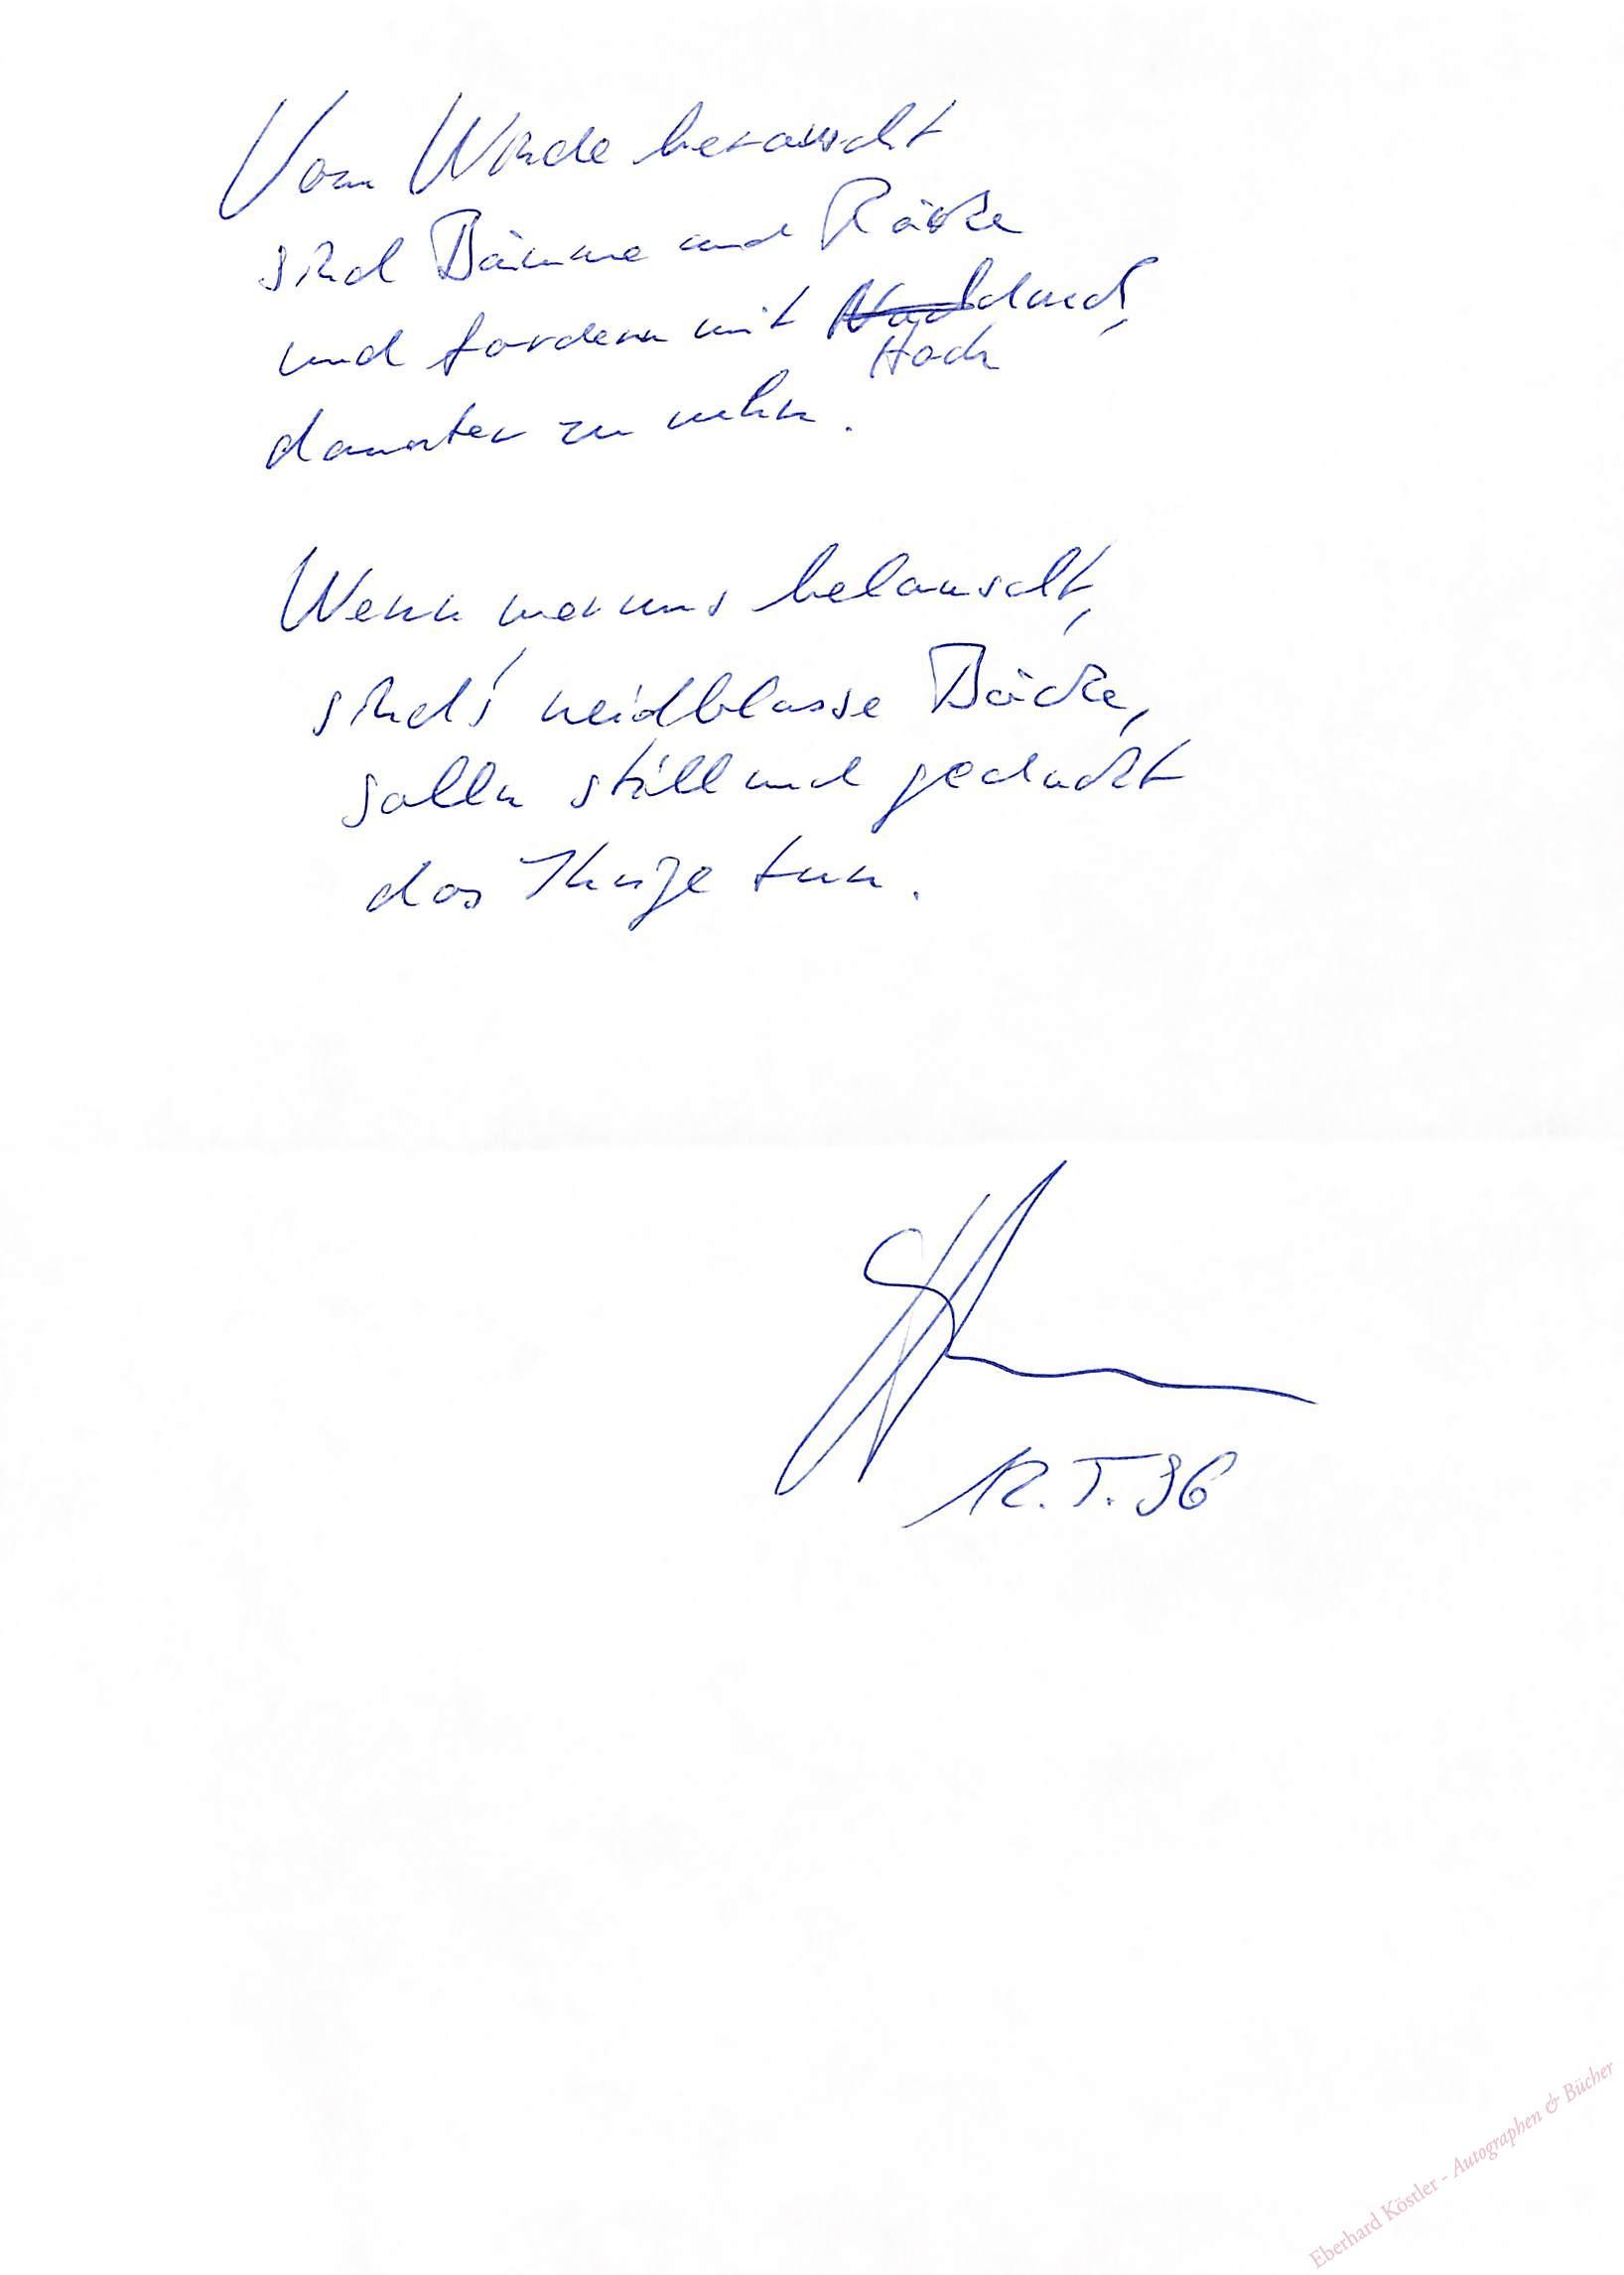 Vom Winde berauscht
sind Bäume und Röcke
und fordern mit Nachdruck,
Hoch
darunter zu
Wenn wer uns belauscht,
sind's neidblasse Böcke,
solln still und geduckt
das Ihrige tun.
12. 5. 96
Eberhard Köstler - Autographen & Bücher